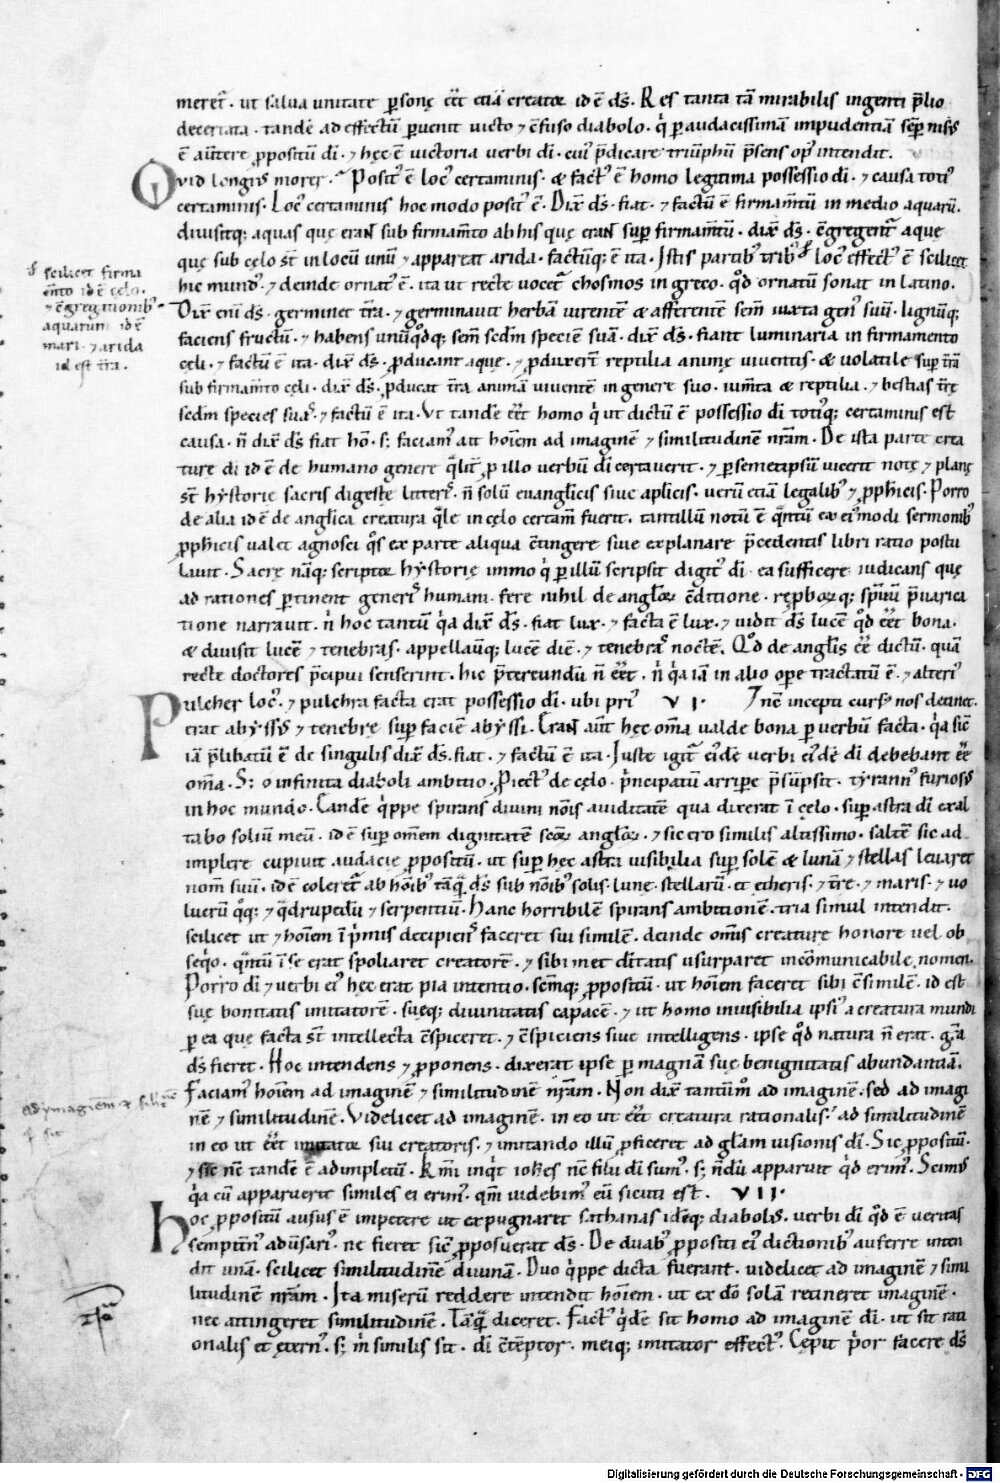 meret᷑. ut salua unitate ꝑsonę eēt etiā creator id ē ds̄. Res tanta tā mirabilis ingenti p̄lio
decertata. tandē ad effectū ꝑuenit uicto ⁊ ↄ̄fuso diabolo. qͥ ꝑ audacissimā impudentiā semꝑ nisꝰ
ē aūtere ꝓpositū di. ⁊ hęc ē uictoria uerbi di. cuiꝰ p̄dicare triūphū p̄sens opꝰ intendit.
Qvid longiꝰ morer. Positꝰ ē locꝰ certaminis. & factꝰ ē homo legitima possessio di. ⁊ causa totiꝰ
certaminis. Locꝰ certaminis hoc modo positꝰ ē. Dix̄ ds̄. fiat. ⁊ factū ē firmam̄tū in medio aquaꝝ.
diuisitq; aquas quę erant sub firmam̄to ab his quę erant suꝑ firmam̄tū. dix̄ ds̄. ↄ̄gregent᷑ aquę
quę sub cęlo s̄t in locū unū ⁊ appareat arida. factūq; ē ita. Istis partibꝰ tribꝰ locꝰ effectꝰ ē scilicet
hic mundꝰ. ⁊ deinde ornatꝰ ē. ita ut recte uocet᷑ chosmos in greco. qd̄ ornatū sonat in latino.
Dix̄ eni ds̄. germinet t̄ra. ⁊ germinauit herbā uirentē & afferentē sem̄ iuxta genꝰ suū. lignūq;
faciens fructū. ⁊ habens unūqd̄q; sem̄ scdm̄ speciē suā. dix̄ ds̄. fiant luminaria in firmamento
cęli. ⁊ factū ē ita. dix̄ ds̄. ꝓducant aquę. ⁊ ꝓduxert̄ reptilia animę uiuentis. & uolatile suꝑ t̄rā
sub firmam̄to cęli. dix̄ ds̄. ꝓducat t̄ra animā uiuentē in genere suo. ium̄ta & reptilia. ⁊ bestias t̄rę
scdm̄ species suas. ⁊ factū ē ita. Vt tandē eēt homo qͥ ut dictū ē possessio di totiꝰq; certaminis est
causa. n̄ dix̄ ds̄ fiat hō. s; faciamꝰ ait hoīem ad imaginē ⁊ similitudinē nr̄am. De ista parte crea
turę di id ē de humano genere qͣlit᷑ ꝓ illo uerbū di certauerit. ⁊ ꝑ semetipsū uicerit notę ⁊ planę
s̄t hystorię sacris digestę litteris. n̄ solū euanglicis siue aplicis. uerū etiā legalibꝰ ⁊ ꝓphicis. Porro
de alia id ē de anglica creatura qͣle in cęlo certam̄ fuerit. tantillū notū ē qͣntū ex eiꝰmodi sermonibꝰ
ꝓphicis ualet agnosci qͦs ex parte aliqua ↄ̄tingere siue explanare p̄cedentis libri ratio postu
lauit. Sacrę nāq; scriptor hystorię immo qͥ ꝑ illū scripsit digitꝰ di. ea sufficere iudicans quę
ad rationes ꝑtinent generis humani. fere nihil de angloꝝ ↄ̄ditione. reꝓboꝝq; sp̄uū p̄uarica
tione narrauit. n̄ hoc tantū qͥa dix̄ ds̄. fiat lux. ⁊ facta ē lux. ⁊ uidit ds̄ lucē qd̄ eēt bona.
& diuisit lucē ⁊ tenebras. appellauitq; lucē diē. ⁊ tenebras noctē. Qd̄ de anglis eē dictū. quā
recte doctores p̄cipui senserint. hic p̄tereundū n̄ eēt. n̄ qͥa iā in alio oꝑe tractatū ē. ⁊ alteriꝰ
Pulcher locꝰ. ⁊ pulchra facta erat possessio di. ubi priꝰ VI. inē incepti cursꝰ nos deuiaret.
erat abyssꝰ ⁊ tenebrę suꝑ faciē abyssi. Erant aūt hęc om̄a ualde bona ꝑ uerbū facta. qͥa sic̄
iā p̄libatū ē de singulis dix̄ ds̄. fiat. ⁊ factū ē ita. Iuste igit᷑ eidē uerbi eidē di debebant eē
om̄a. S; o infinita diaboli ambitio. Piectꝰ de cęlo. p̄ncipatū arriꝑe p̄sūpsit. tyrannꝰ furiosꝰ
in hoc mundo. Eandē qͥppe spirans diuini nōis auiditatē qua dixerat ī cęlo. suꝑ astra di exal
tabo soliū meū. id ē suꝑ om̄em dignitatē scōꝝ angloꝝ. ⁊ sic ero similis altissimo. saltē sic ad
implere cupiuit audacię ꝓpositū. ut suꝑ hęc astra uisibilia suꝑ solē & lunā ⁊ stellas leuaret
nom̄ suū. id ē coleret᷑ ab hoībꝰ tāqͣ ds̄ sub nōibꝰ solis. lunę. stellarū. et ętheris. ⁊ t̄rę. ⁊ maris. ⁊ uo
lucrū qͦq; ⁊ qͣdrupedū ⁊ serpentiū. Hanc horribilē spirans ambitionē. tria simul intendit.
scilicet ut ⁊ hoīem ī p̄mis decipiens faceret sui similē. deinde om̄is creaturę honore uel ob
seqͦo. qͣntū ī se erat spoliaret creatorē. ⁊ sibimet d̄itatis usurparet incōmunicabile nomen.
Porro di ⁊ uerbi eiꝰ hęc erat pia intentio. sem̄q; ꝓpositū. ut hoīem faceret sibi ↄ̄similē. id est
suę bonitatis imitatorē. suęq; diuinitatis capacē. ⁊ ut homo inuisibilia ipsiꝰ a creatura mundi
ꝑ ea quę facta s̄t intellecta ↄ̄spiceret. ⁊ ↄ̄spiciens siue intelligens. ipse qd̄ natura n̄ erat. gr̄a
ds̄ fieret. Hoc intendens ⁊ ꝓponens. dixerat ipse ꝑ magnā suę benignitatis abundantiā.
Faciamꝰ hoīem ad imaginē ⁊ similitudinē nr̄am. Non dix̄ tantūmͦ ad imaginē. sed ad imagi
nē ⁊ similitudinē. Videlicet ad imaginē. in eo ut eēt creatura rationalis. ad similitudinē
in eo ut eēt imitator sui creatoris. ⁊ imitando illū ꝓficeret ad glām uisionis di. Sic ꝓpositū.
⁊ sic nc̄ tandē ē adimpletū. Kmī inqͥt iohes nc̄ filii di sumꝰ. s; ndū apparuit qͥd erimꝰ. Scimꝰ
qͥa cū apparuerit similes ei erimꝰ. qm̄ uidebimꝰ eū sicuti est. VII.
Hoc ꝓpositū ausus ē impetere ut expugnaret sathanas idēq; diabolꝰ. uerbi di qd̄ ē ueritas
sempitn̄ꝰ aduersariꝰ. ne fieret sic̄ ꝓposuerat ds̄. De duabꝰ ꝓpositi eiꝰ dictionibꝰ auferre inten
dit unā. scilicet similitudinē diuinā. Duo qͥppe dicta fuerant. uidelicet ad imaginē ⁊ simi
litudinē nr̄am. Ita miserū reddere intendit hoīem. ut ex dō solā retineret imaginē.
nec attingeret similitudinē. Tāqͣ diceret. Factꝰ qͥdē sit homo ad imaginē di. ut sit rati
onalis et ęternꝰ. s; m̄ similis sit. di ↄ̄tēptor. meiq; imitator effectꝰ. Cępit pͥor facere ds̄
scilicet firma
m̄to id ē cęlo.
⁊ ↄ̄gregationibꝰ
aquarum id ē
mari. ⁊ arida
id est t̄ra.
ad ymaginem & simil
Digitalisierung gefördert durch die Deutsche Forschungsgemeinschaft - DFG